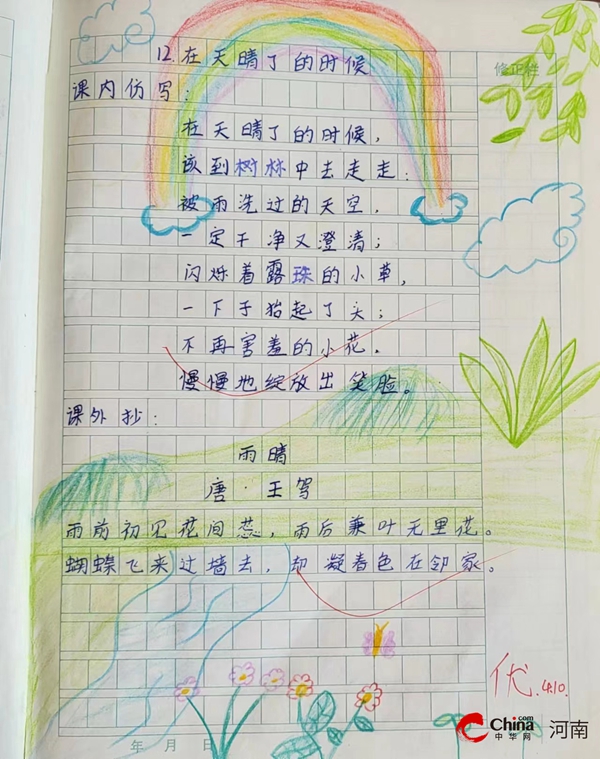 12.在天晴了的时候
修正栏
课内仿写:
在天晴了的时候,
该到树林中去走走;
被雨洗过的天空,
一定干净又澄清;
闪烁着露珠的小草,
一下子抬起了头;
不再害羞的小花,
慢慢地绽放出笑脸。
课外抄:
雨晴
唐·王驾
雨前初见花间蕊,雨后兼叶无里花。
蝴蝶飞来过墙去,却凝春色在邻家。
优.4.10.
年 月 日
China.com
中华网
河南